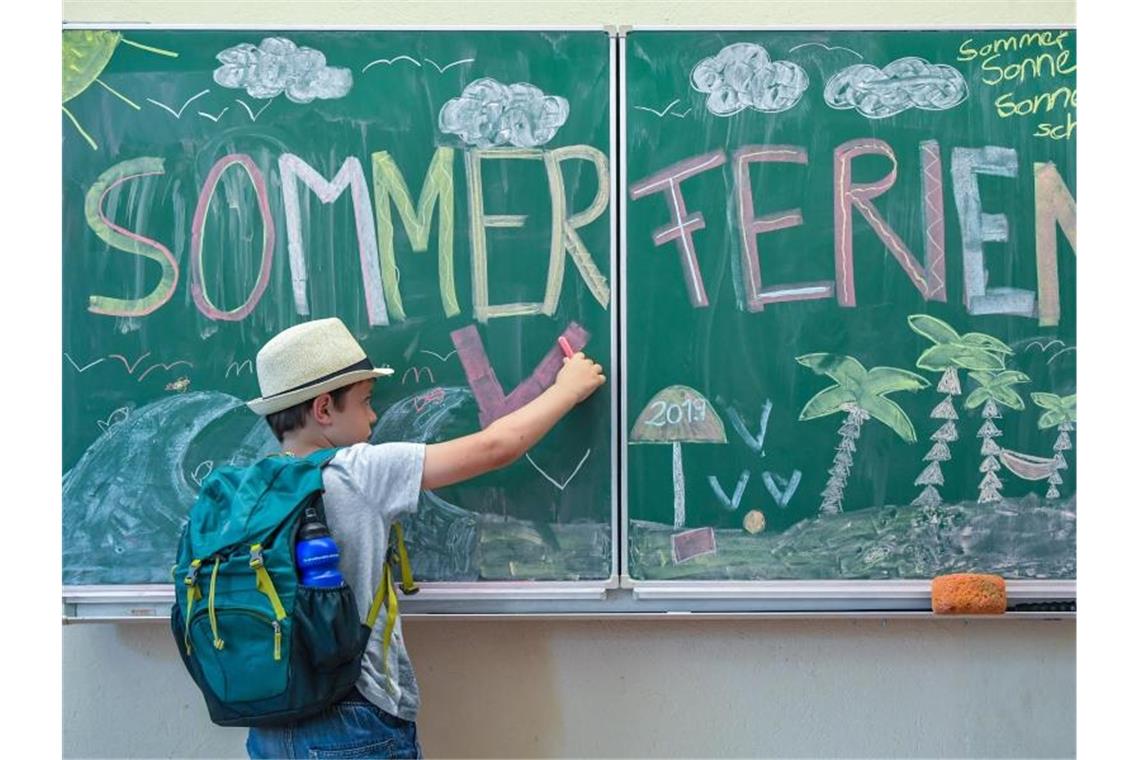 SOMMER FERIEN
Sommer
Sonne
Sonne
sch
2019